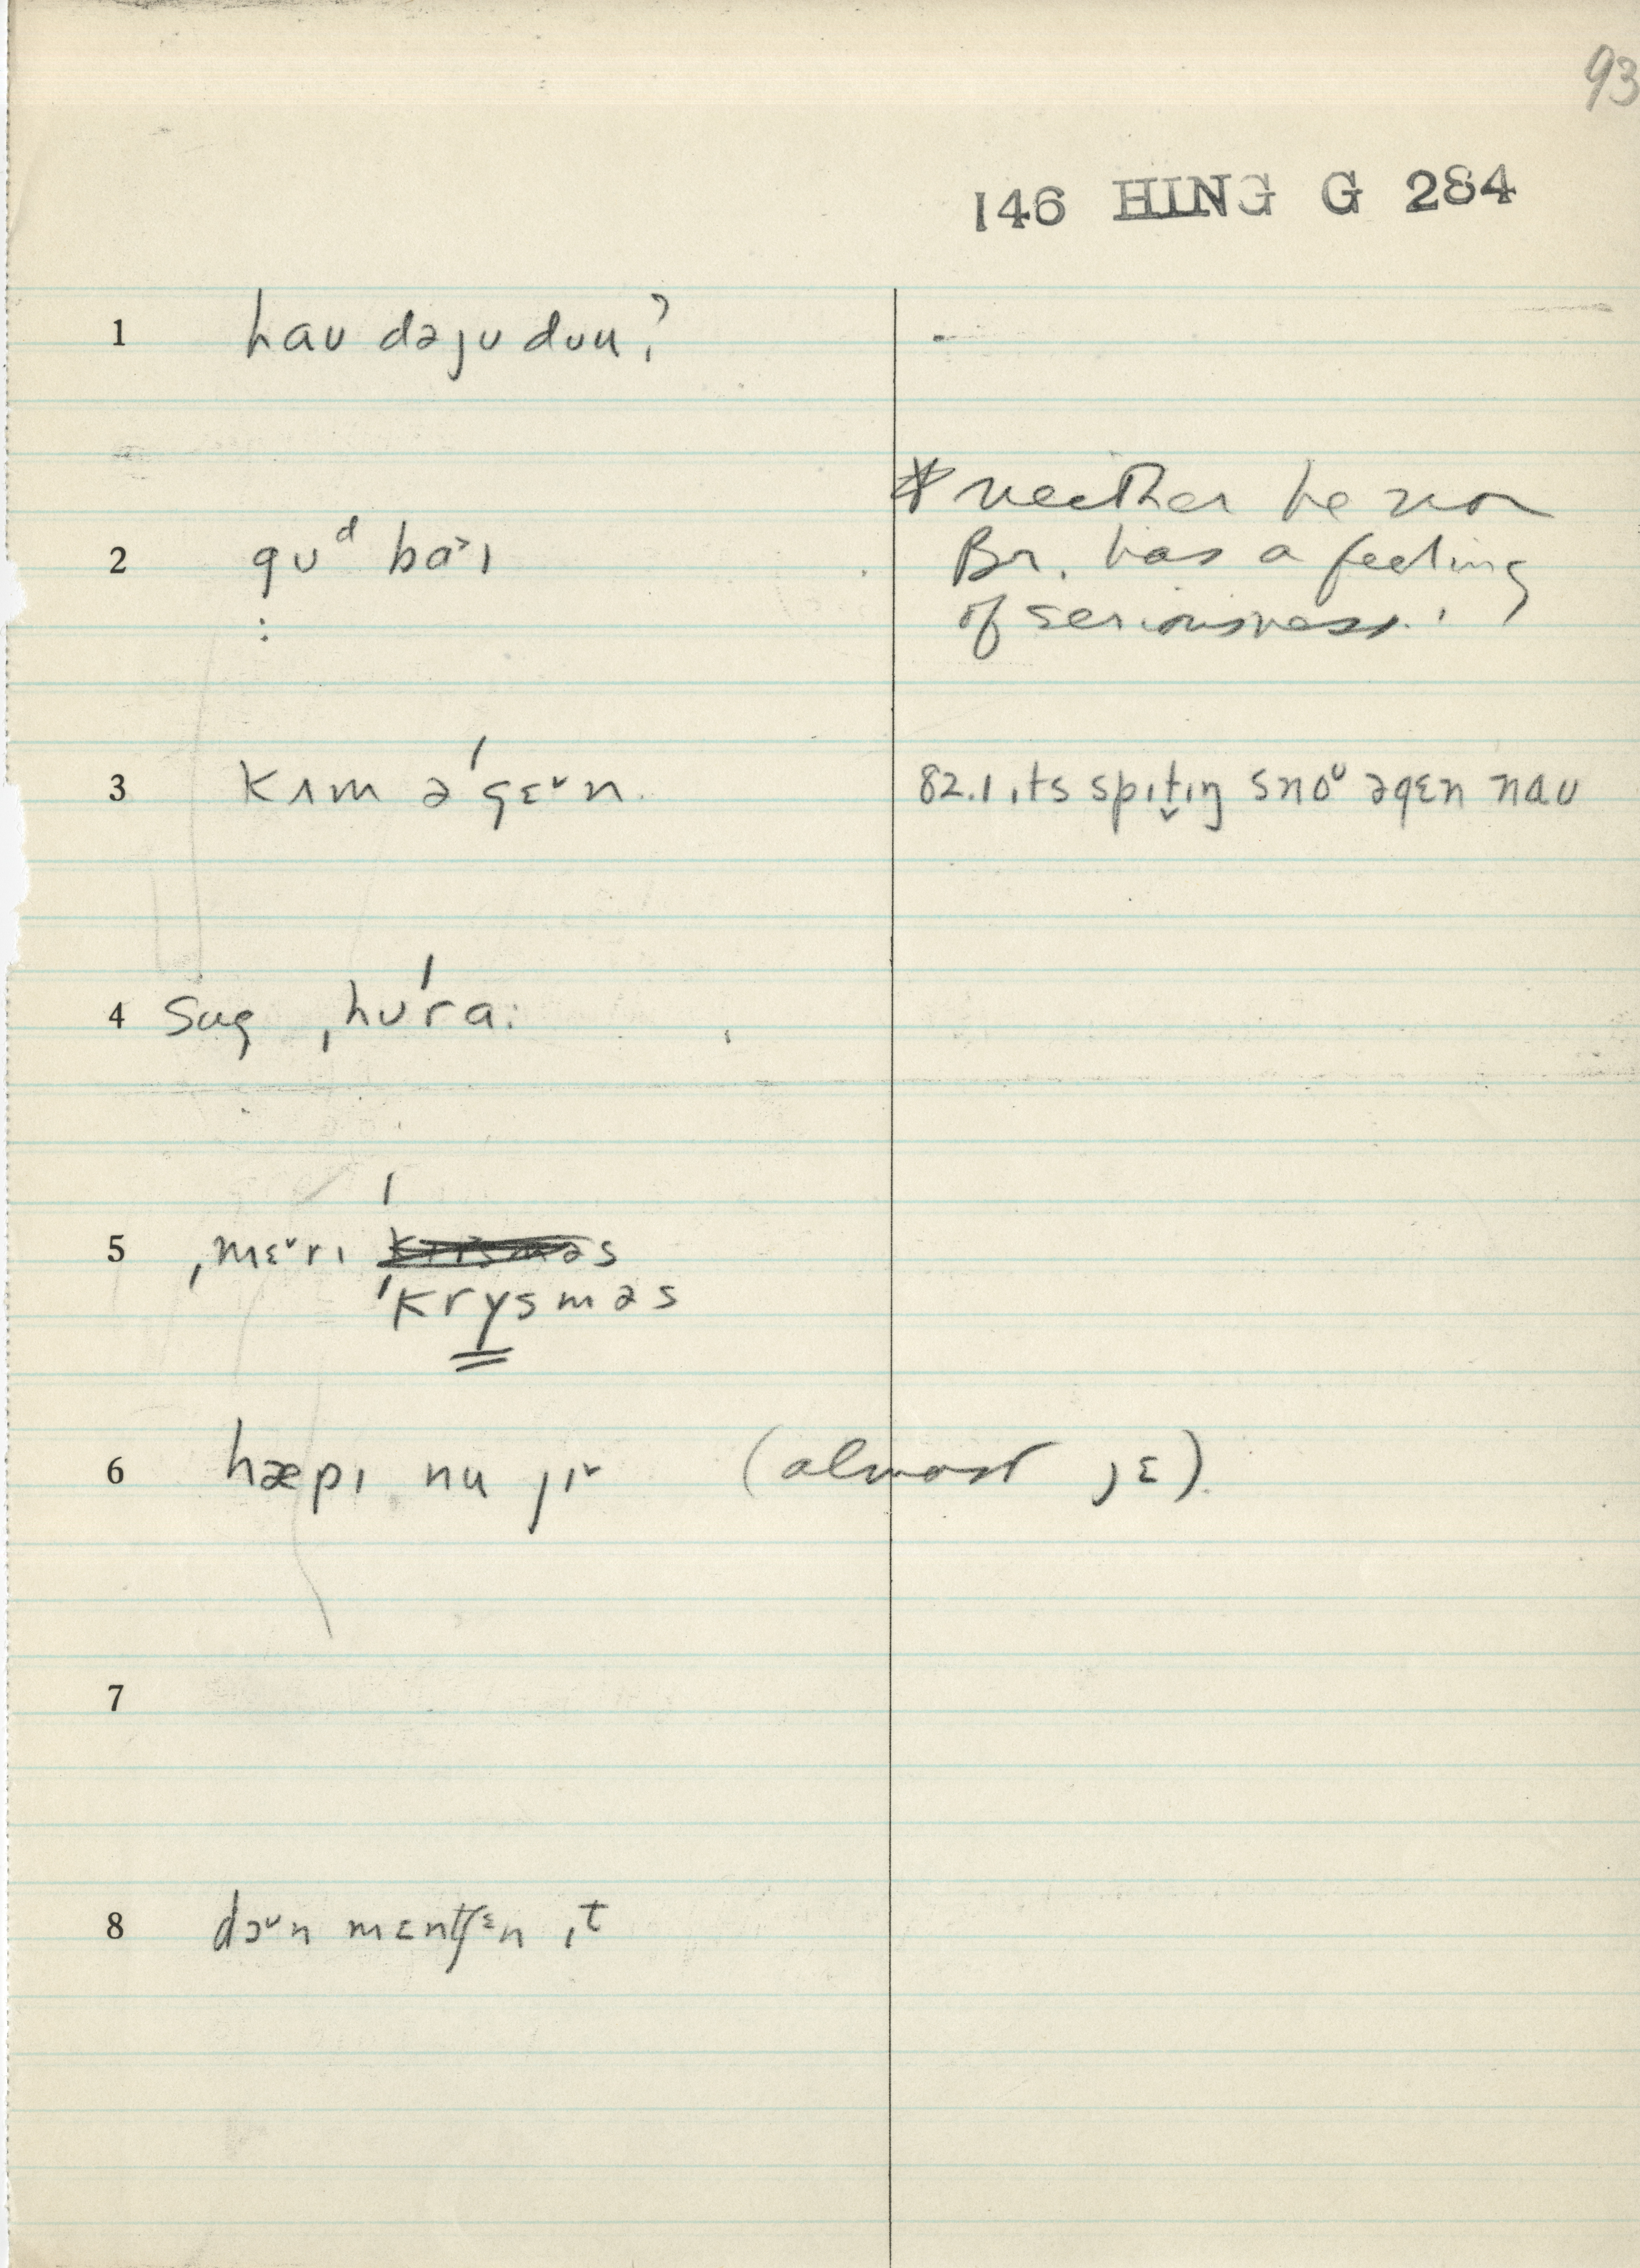 93
146 HING G 284
1 haʊ dəjʊ dʊu?
2 gʊᵈ ba˃ɪ
:
* neither he nor
Br. has a feeling
of seriousness.
3 kʌm əˈgɛ˅n.
82.1 ɪts spɪt̬ɪŋ snoᶷ əgɛn naʊ
4 Sug ˌhʊˈra:
5 ˌmɛ˅rɪ krɪsməs
ˈkrysməs
6 hæpɪ nu jɪ˅ (almost jɛ).
7
8 dɔ˅n mɛnʧᵋn ɪt